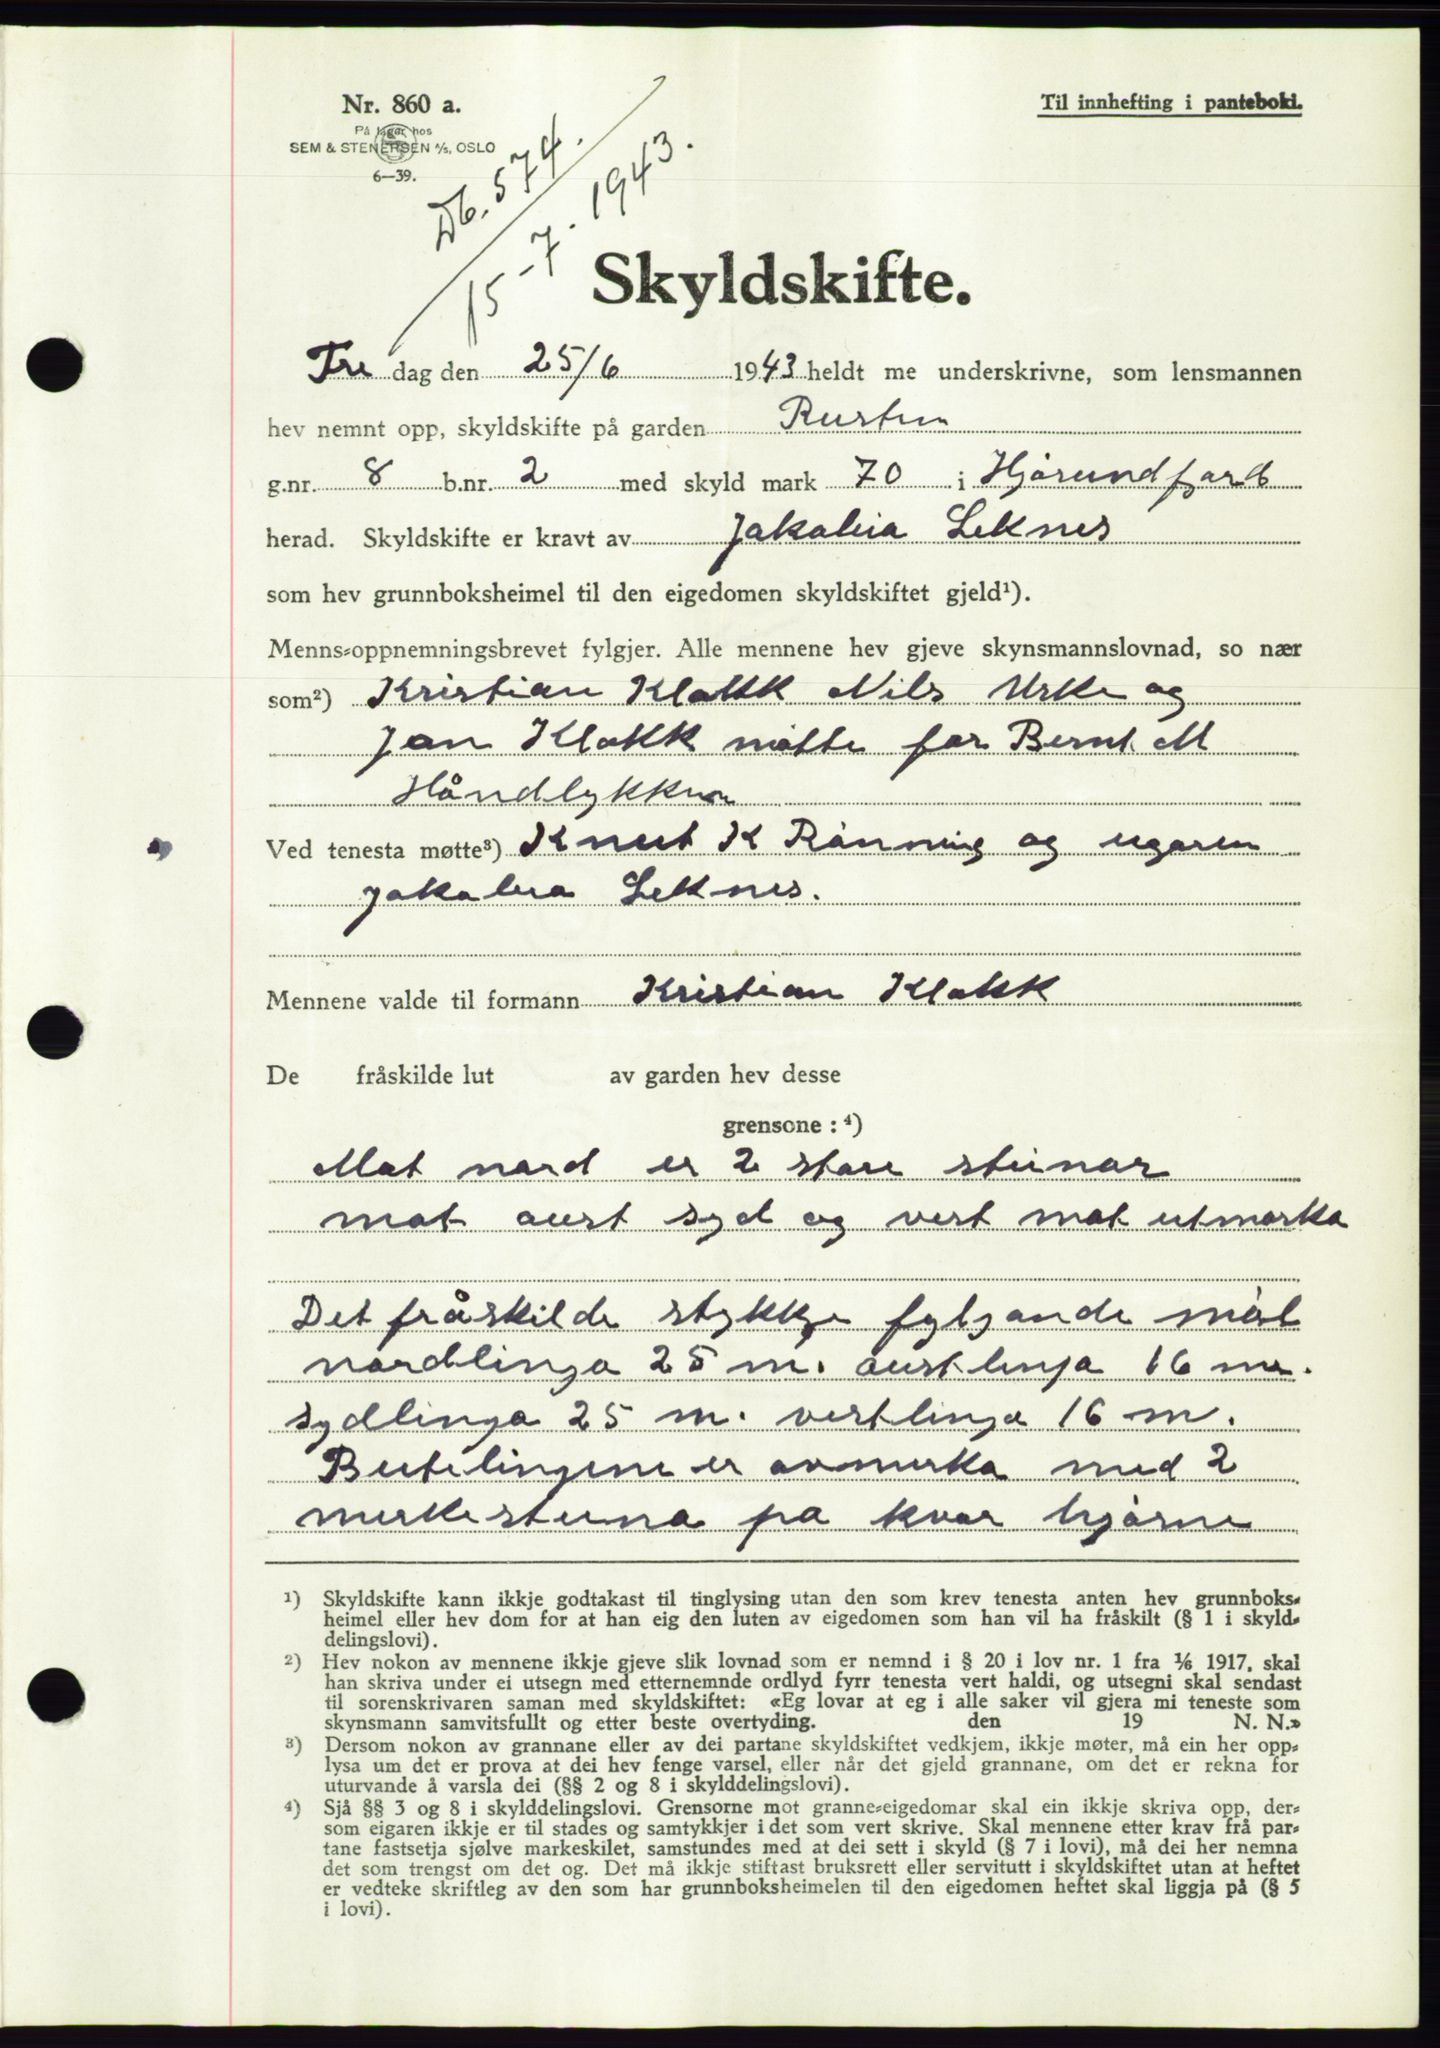 Nr. 860 a.
På lager hos
SEM & STENERSEN A/S, OSLO
6—39.
Til innhefting i panteboki.
Db. 574.
15-7. 1943.
Skyldskifte.
Fre dag den 25/6 1943 heldt me underskrivne, som lensmannen
hev nemnt opp, skyldskifte på garden Rusten
g.nr. 8 b.nr. 2 med skyld mark 70 i Hjørundfjord
herad. Skyldskifte er kravt av Jakobia Leknes
som hev grunnboksheimel til den eigedomen skyldskiftet gjeld¹).
Menns-oppnemningsbrevet fylgjer. Alle mennene hev gjeve skynsmannslovnad, so nær
som²) Kristian Klokk Nils Urke og
Jon Klokk møtte for Bernt M
Håndlykken
Ved tenesta møtte³) Knut K Rønning og eigaren
Jakobia Leknes.
Mennene valde til formann Kristian Klokk
De fråskilde lut av garden hev desse
grensone :⁴)
Mot nord er 2 store steinar
mot aust syd og vest mot utmarka
Det fråskilde stykkje fylgjande mål
nordlinja 25 m. austlinja 16 m.
sydlinja 25 m. vestlinja 16 m.
Butelinjene er avmerka med 2
merkesteina på kvar hjørne
¹) Skyldskifte kann ikkje godtakast til tinglysing utan den som krev tenesta anten hev grunnboks-
heimel eller hev dom for at han eig den luten av eigedomen som han vil ha fråskilt (§ 1 i skyld-
delingslovi).
²) Hev nokon av mennene ikkje gjeve slik lovnad som er nemnd i § 20 i lov nr. 1 fra 1/6 1917, skal
han skriva under ei utsegn med etternemnde ordlyd fyrr tenesta vert haldi, og utsegni skal sendast
til sorenskrivaren saman med skyldskiftet: «Eg lovar at eg i alle saker vil gjera mi teneste som
skynsmann samvitsfullt og etter beste overtyding. den 19 N. N.»
³) Dersom nokon av grannane eller av dei partane skyldskiftet vedkjem, ikkje møter, må ein her opp-
lysa um det er prova at dei hev fenge varsel, eller når det gjeld grannane, om det er rekna for
uturvande å varsla dei (§§ 2 og 8 i skylddelingslovi).
⁴) Sjå §§ 3 og 8 i skylddelingslovi. Grensorne mot granne-eigedomar skal ein ikkje skriva opp, der-
som eigaren ikkje er til stades og samtykkjer i det som vert skrive. Skal mennene etter krav frå par-
tane fastsetja sjølve markeskilet, samstundes med at dei sett i skyld (§ 7 i lovi), må dei her nemna
det som trengst om det og. Det må ikkje stiftast bruksrett eller servitutt i skyldskiftet utan at heftet
er vedteke skriftleg av den som har grunnboksheimelen til den eigedomen heftet skal liggja på (§ 5
i lovi).